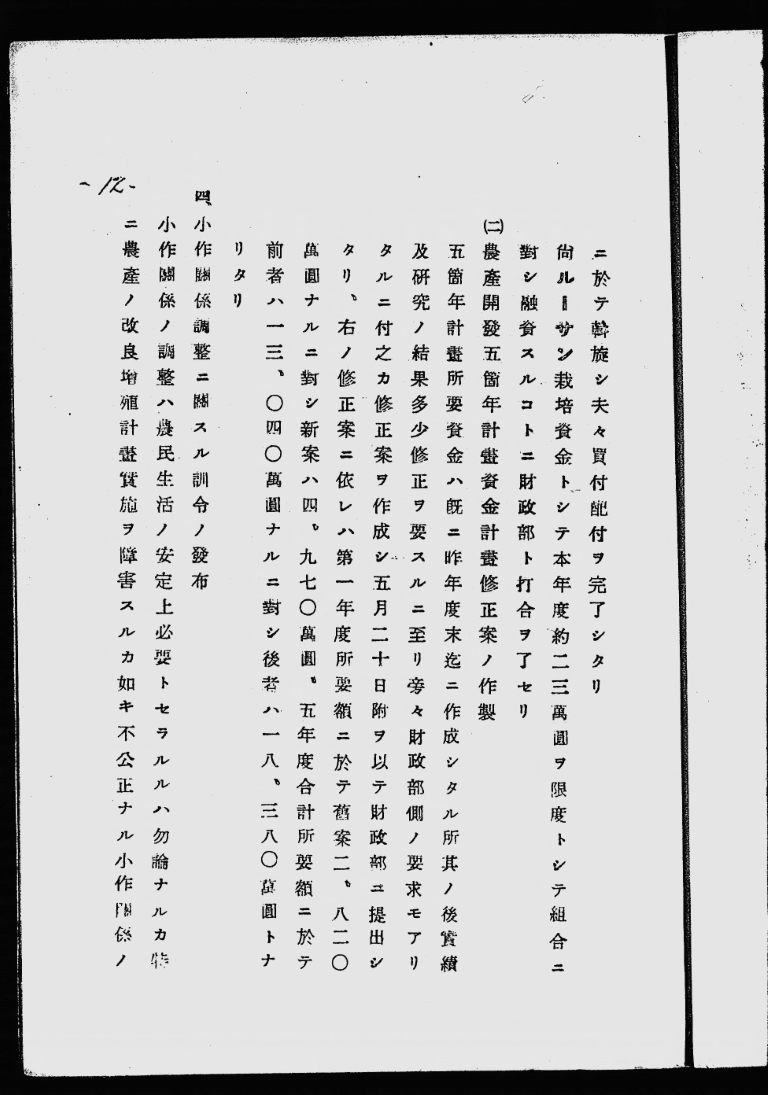 ニ於テ斡旋シ夫々買付配付ヲ完了シタリ
尙ルーサン栽培資金トシテ本年度約二三萬圓ヲ限度トシテ組合ニ
對シ融資スルコトニ財政部ト打合ヲ了セリ
㈡農產開發五箇年計畫資金計畫修正案ノ作製
五箇年計畫所要資金ハ旣ニ昨年度末迄ニ作成シタル所其ノ後實績
及硏究ノ結果多少修正ヲ要スルニ至リ旁々財政部側ノ要求モアリ
タルニ付之カ修正案ヲ作成シ五月二十日附ヲ以テ財政部ニ提出シ
タリ、右ノ修正案ニ依レハ第一年度所要額ニ於テ舊案二、八二〇
萬圓ナルニ對シ新案ハ四、九七〇萬圓、五年度合計所要額ニ於テ
前者ハ一三、〇四〇萬圓ナルニ對シ後者ハ一八、三八〇萬圓トナ
リタリ
四、小作關係調整ニ關スル訓令ノ發布
小作關係ノ調整ハ農民生活ノ安定上必要トセラルルハ勿論ナルカ特
ニ農產ノ改良增殖計畫實施ヲ障害スルカ如キ不公正ナル小作關係ノ
-12-